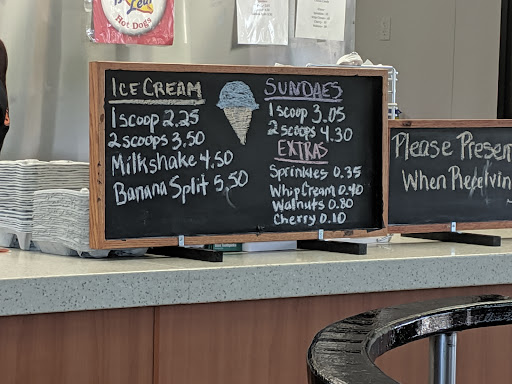 Hot Dogs
ICE CREAM
1 scoop 2.25
2 scoops 3.50
Milkshake 4.50
Banana Split 5.50
SUNDAES
1 scoop 3.05
2 scoops 4.30
EXTRAS
Sprinkles 0.35
Whip Cream 0.40
Walnuts 0.80
Cherry 0.10
Please Presen
When Receivin